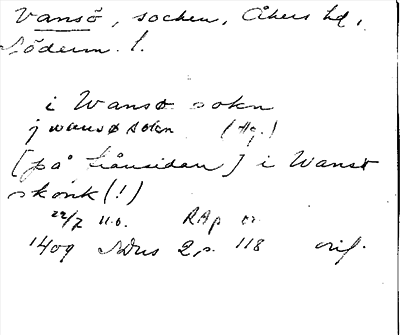 Vansö, socken, Åkers hd,
Söderm. l.
i Wansø sokn
j wansø sokn (Hg!)
[på frånsidan] i Wansø
skonk (!)
22/7 u.o. RAp or.
1409 NDus 2, s. 118 orig.